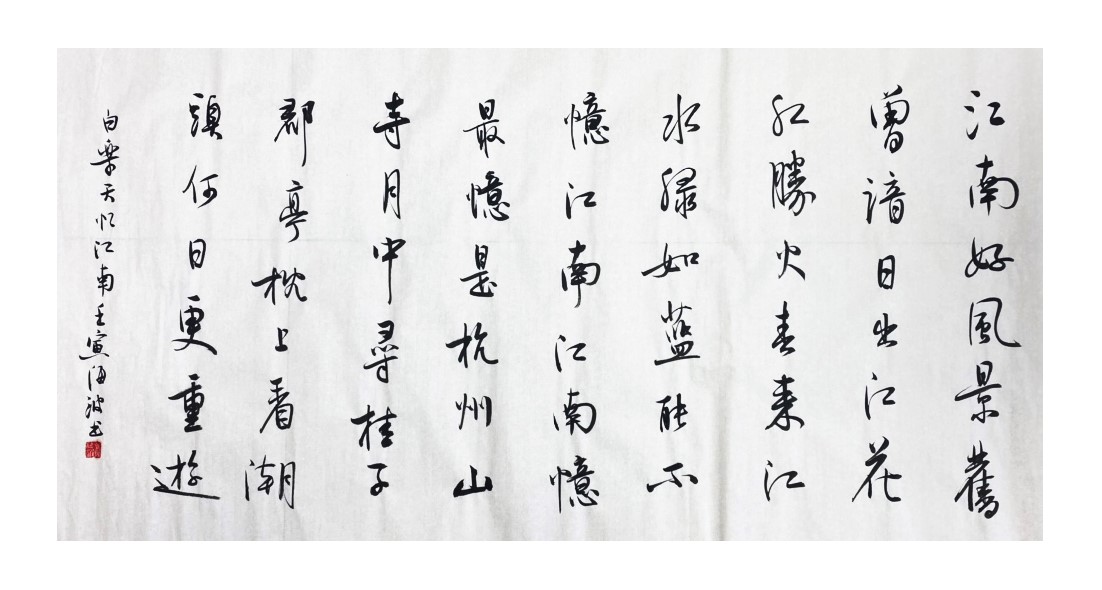 江南好風景舊
曾諳日出江花
红勝火春来江
水緑如藍能不
憶江南江南憶
最憶是杭州山
寺月中尋桂子
郡亭枕上看潮
頭何日更重遊
白樂天忆江南壬寅海波书